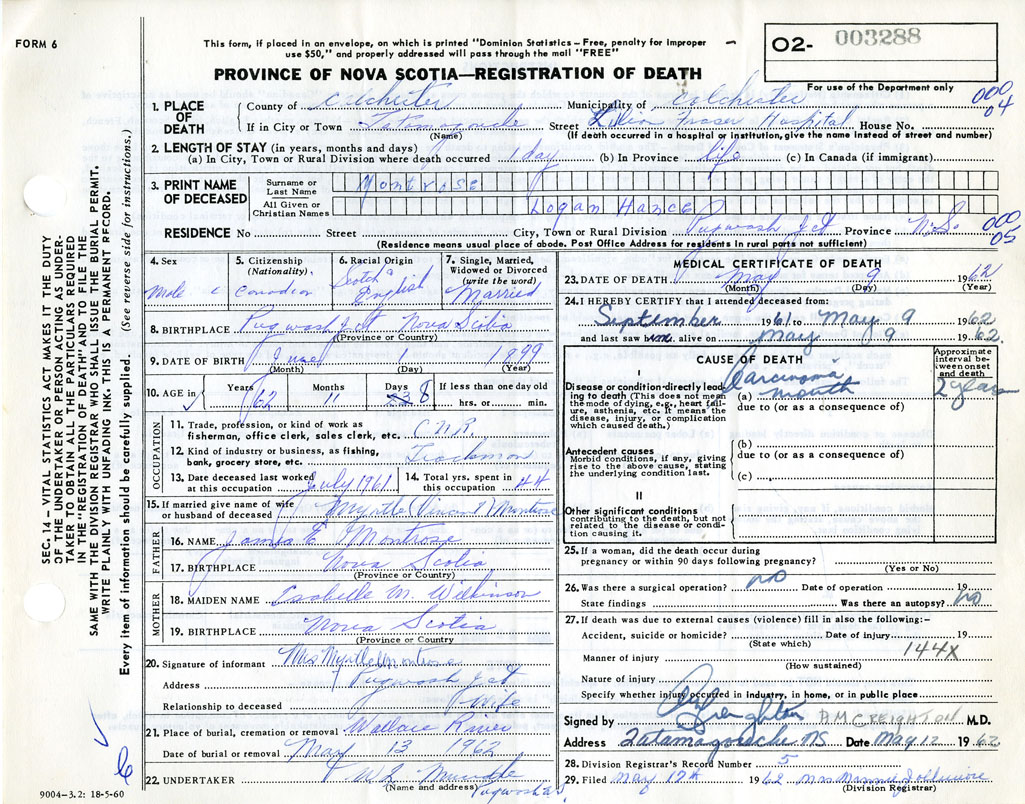 FORM 6
This form, if placed in an envelope, on which is printed "Dominion Statistics - Free, penalty for improper
use $50," and properly addressed will pass through the mail "FREE"
O2- 003288
For use of the Department only
PROVINCE OF NOVA SCOTIA—REGISTRATION OF DEATH
000
04
1. PLACE OF DEATH
County of Colchester Municipality of Colchester
If in City or Town Tatamagouche Street Lilian Fraser Hospital House No.
(Name) (If death occurred in a hospital or institution, give the name instead of street and number)
2. LENGTH OF STAY (in years, months and days)
(a) In City, Town or Rural Division where death occurred 1 day (b) In Province life (c) In Canada (if immigrant)
3. PRINT NAME OF DECEASED
Surname or Last Name Montrose
All Given or Christian Names Logan Hance
000
05
RESIDENCE No Street City, Town or Rural Division Pugwash Jct Province N.S.
(Residence means usual place of abode. Post Office Address for residents in rural parts not sufficient)
4. Sex Male
5. Citizenship (Nationality) Canadian
6. Racial Origin Scotch English
7. Single, Married, Widowed or Divorced (write the word) Married
8. BIRTHPLACE Pugwash Jct Nova Scotia
(Province or Country)
9. DATE OF BIRTH June 1 1899
(Month) (Day) (Year)
10. AGE in Years 62 Months 11 Days 8 If less than one day old hrs. or min.
OCCUPATION
11. Trade, profession, or kind of work as
fisherman, office clerk, sales clerk, etc. C.N.R.
12. Kind of industry or business, as fishing,
bank, grocery store, etc.
13. Date deceased last worked
at this occupation July 1961
14. Total yrs. spent in
this occupation 44
15. If married give name of wife
or husband of deceased Myrtle (Vincent) Montrose
FATHER
16. NAME James E Montrose
17. BIRTHPLACE Nova Scotia
(Province or Country)
MOTHER
18. MAIDEN NAME Esabelle M. Wilkinson
19. BIRTHPLACE Nova Scotia
(Province or Country
20. Signature of informant Mrs Myrtle Montrose
Address Pugwash Jct
Relationship to deceased Wife
21. Place of burial, cremation or removal Wallace River
Date of burial or removal May 13 1962
22. UNDERTAKER
(Name and address) Pugwash
9004-3.2: 18-5-60
SEC. 14 - VITAL STATISTICS ACT MAKES IT THE DUTY
OF THE UNDERTAKER OR PERSON ACTING AS UNDER-
TAKER TO OBTAIN ALL THE PARTICULARS REQUIRED
IN THE "REGISTRATION OF DEATH" AND TO FILE THE
SAME WITH THE DIVISION REGISTRAR WHO SHALL ISSUE THE BURIAL PERMIT.
WRITE PLAINLY WITH UNFADING INK. THIS IS A PERMANENT RECORD.
Every item of information should be carefully supplied. (See reverse side for instructions.)
MEDICAL CERTIFICATE OF DEATH
23. DATE OF DEATH May 9 1962
(Month) (Day) (Year)
24. I HEREBY CERTIFY that I attended deceased from:
September 1961 to May 9 1962
and last saw him alive on May 9 1962.
CAUSE OF DEATH
Approximate interval between onset and death
I
Disease or condition directly leading to death (This does not mean the mode of dying, e.g., heart failure, asthenia, etc. It means the disease, injury, or complication which caused death.)
(a) Carcinoma mouth 2 years
due to (or as a consequence of)
Antecedent causes
Morbid conditions, if any, giving rise to the above cause, stating the underlying condition last.
(b)
due to (or as a consequence of)
(c)
II
Other significant conditions
contributing to the death, but not related to the disease or condition causing it.
25. If a woman, did the death occur during
pregnancy or within 90 days following pregnancy?
(Yes or No)
26. Was there a surgical operation? no Date of operation 19
State findings Was there an autopsy? no
27. If death was due to external causes (violence) fill in also the following:-
Accident, suicide or homicide? Date of injury 19
(State which) 144X
Manner of injury
(How sustained)
Nature of injury
Specify whether injury occurred in industry, in home, or in public place
Signed by Creighton D.M.CREIGHTON M.D.
Address Tatamagouche NS Date May 12 1962
28. Division Registrar's Record Number 5
29. Filed May 17th 1962
(Division Registrar)